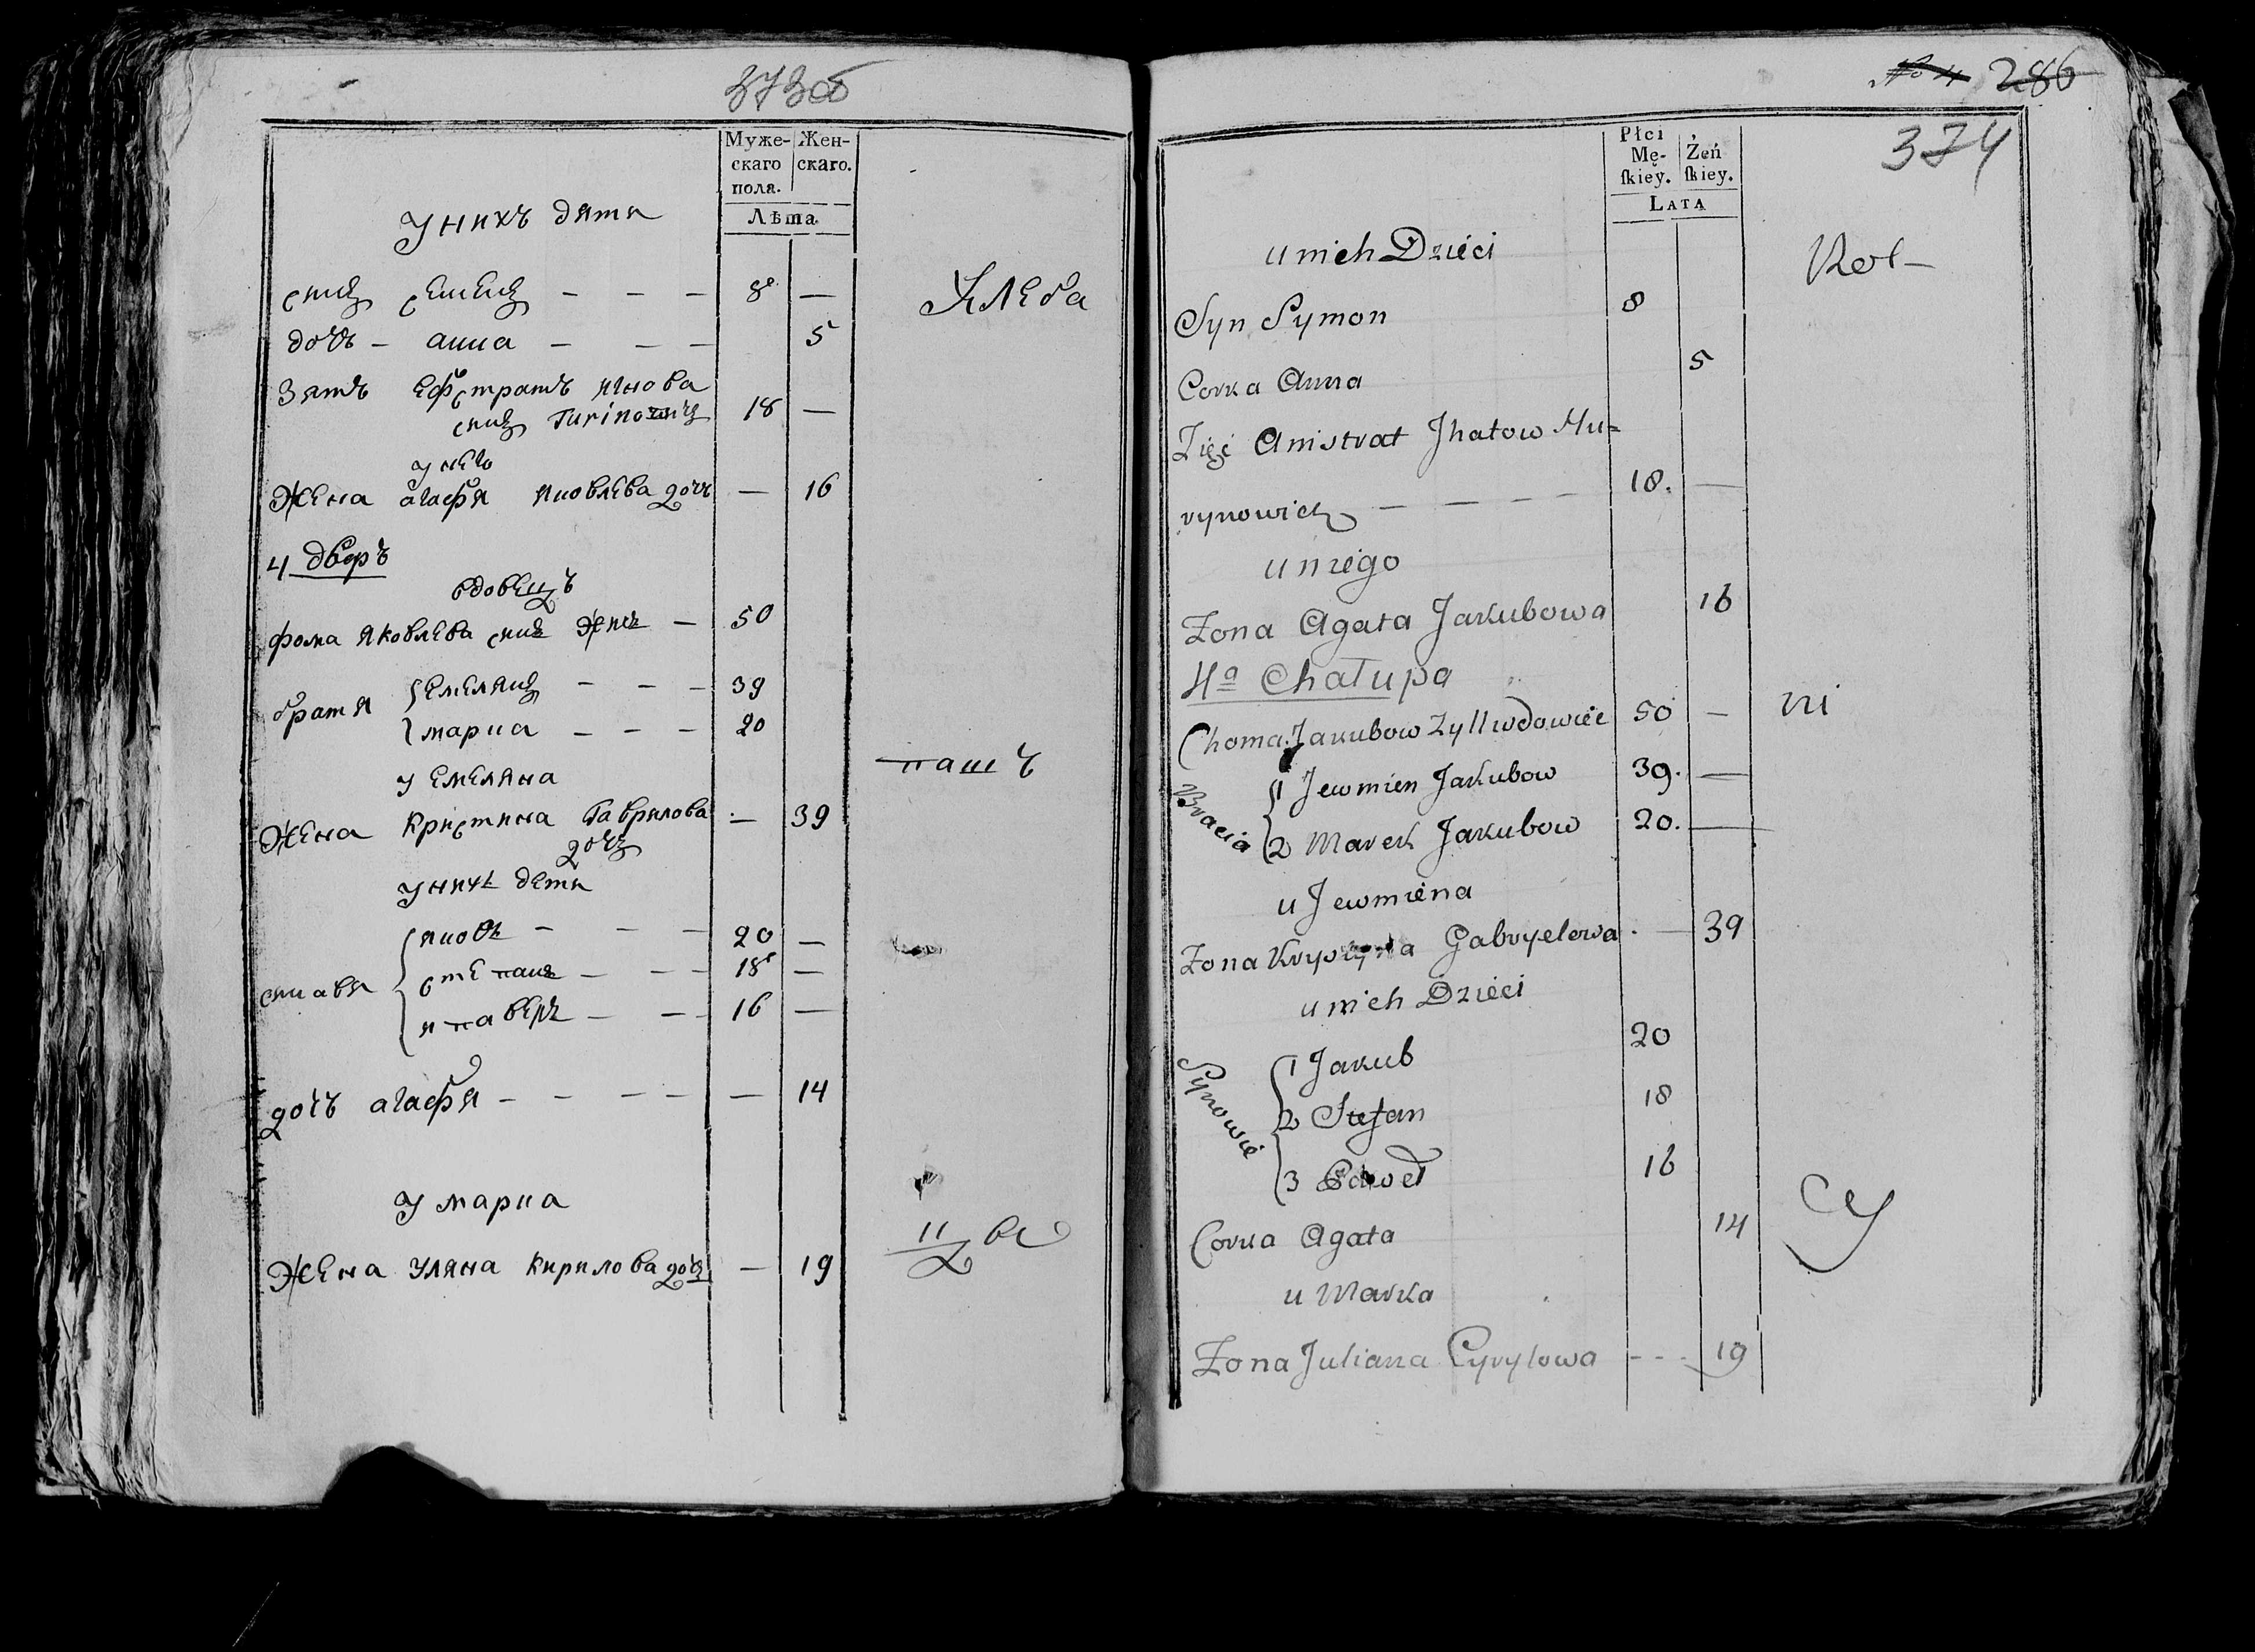 373об
Муже-
скаго
пола.
Жен-
скаго.
Лѣта
У нихъ дѣти
8 —
дочь – анна – — — 5
Зять Ефстратъ
18 —
у него
Жена агафя яковлева дочь — 16
4 дворъ
вдовецъ
фома яковлева сынъ — 50
братя
Емелянъ – — — 39
марка — — — 20
у Емеляна
Жена Кристина Гаврилова — 39
дочь
у нихъ дети
сыновя
яковъ – — — 20 —
степанъ — — — 18 —
павелъ — — — 16 —
дочь агафя – — — — 14
у марка
Жена уляна Кирилова дочь — 19
Хлеба
пашъ
№ 4 286
374
Płci
Mę-
skiey.
Żeń
skiey.
Lata
u nich Dzieci
Syn Symon 8
Corka Anna 5
Zięć Anistrat Jhatow Hu-
rynowicz — — — — 18. —
u niego
Zona Agata Jakubowa 16
4a Chałupa
Choma Jakubow Zyll wdowiec 50 —
Bracia
1 Jewmien Jakubow 39. —
2 Marek Jakubow 20. —
u Jewmiena
Zona Krystyna Gabryelowa — 39
u nich Dzieci
Synowie
1 Jakub 20
2 Stefan 18
3 Paweł 16
Corka Agata 14
u Marka
Zona Juliana Cyryłowa - - - 19
ni